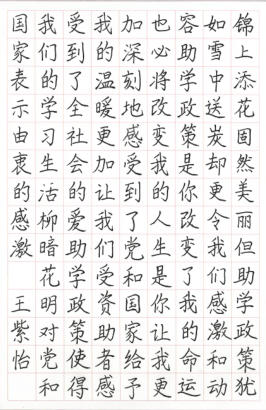 锦上添花固然美丽但助学政策犹
如雪中送炭却更令我们感激和动
容助学政策是你改变了我的命运
也必将改变我的人生是你让我更
加深刻地感受到了党和国家给予
我的温暖更加让我们受资助者感
受到了全社会的爱助学政策使得
我们的学习生活柳暗花明对党和
国家表示由衷的感激 王紫怡